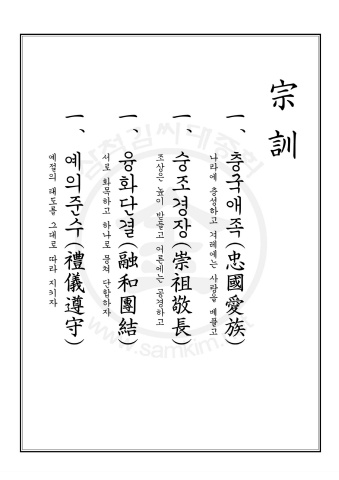 宗訓
一、충국애족(忠國愛族)
나라에 충성하고 겨레에는 사랑을 베풀고
一、숭조경장(崇祖敬長)
조상은 높이 받들고 어른에는 공경하고
一、융화단결(融和團結)
서로 화목하고 하나로 뭉쳐 단합하자
一、예의준수(禮儀遵守)
예절의 태도를 그대로 따라 지키자
삼척김씨대종회
www.samkim.net